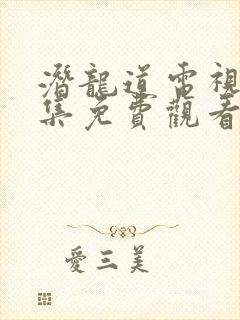 潛龍道電視
集免費觀看
愛三美